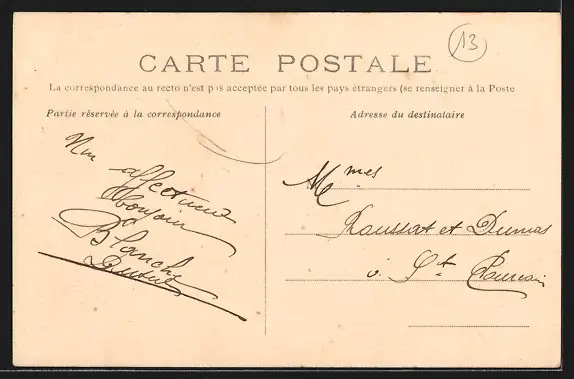 13
CARTE POSTALE
La correspondance au recto n'est pas acceptée par tous les pays étrangers (se renseigner à la Poste
Partie réservée à la correspondance
Adresse du destinataire
affectueux
bonjour
Blanche
Mmes
Roussat et Dumas
à St